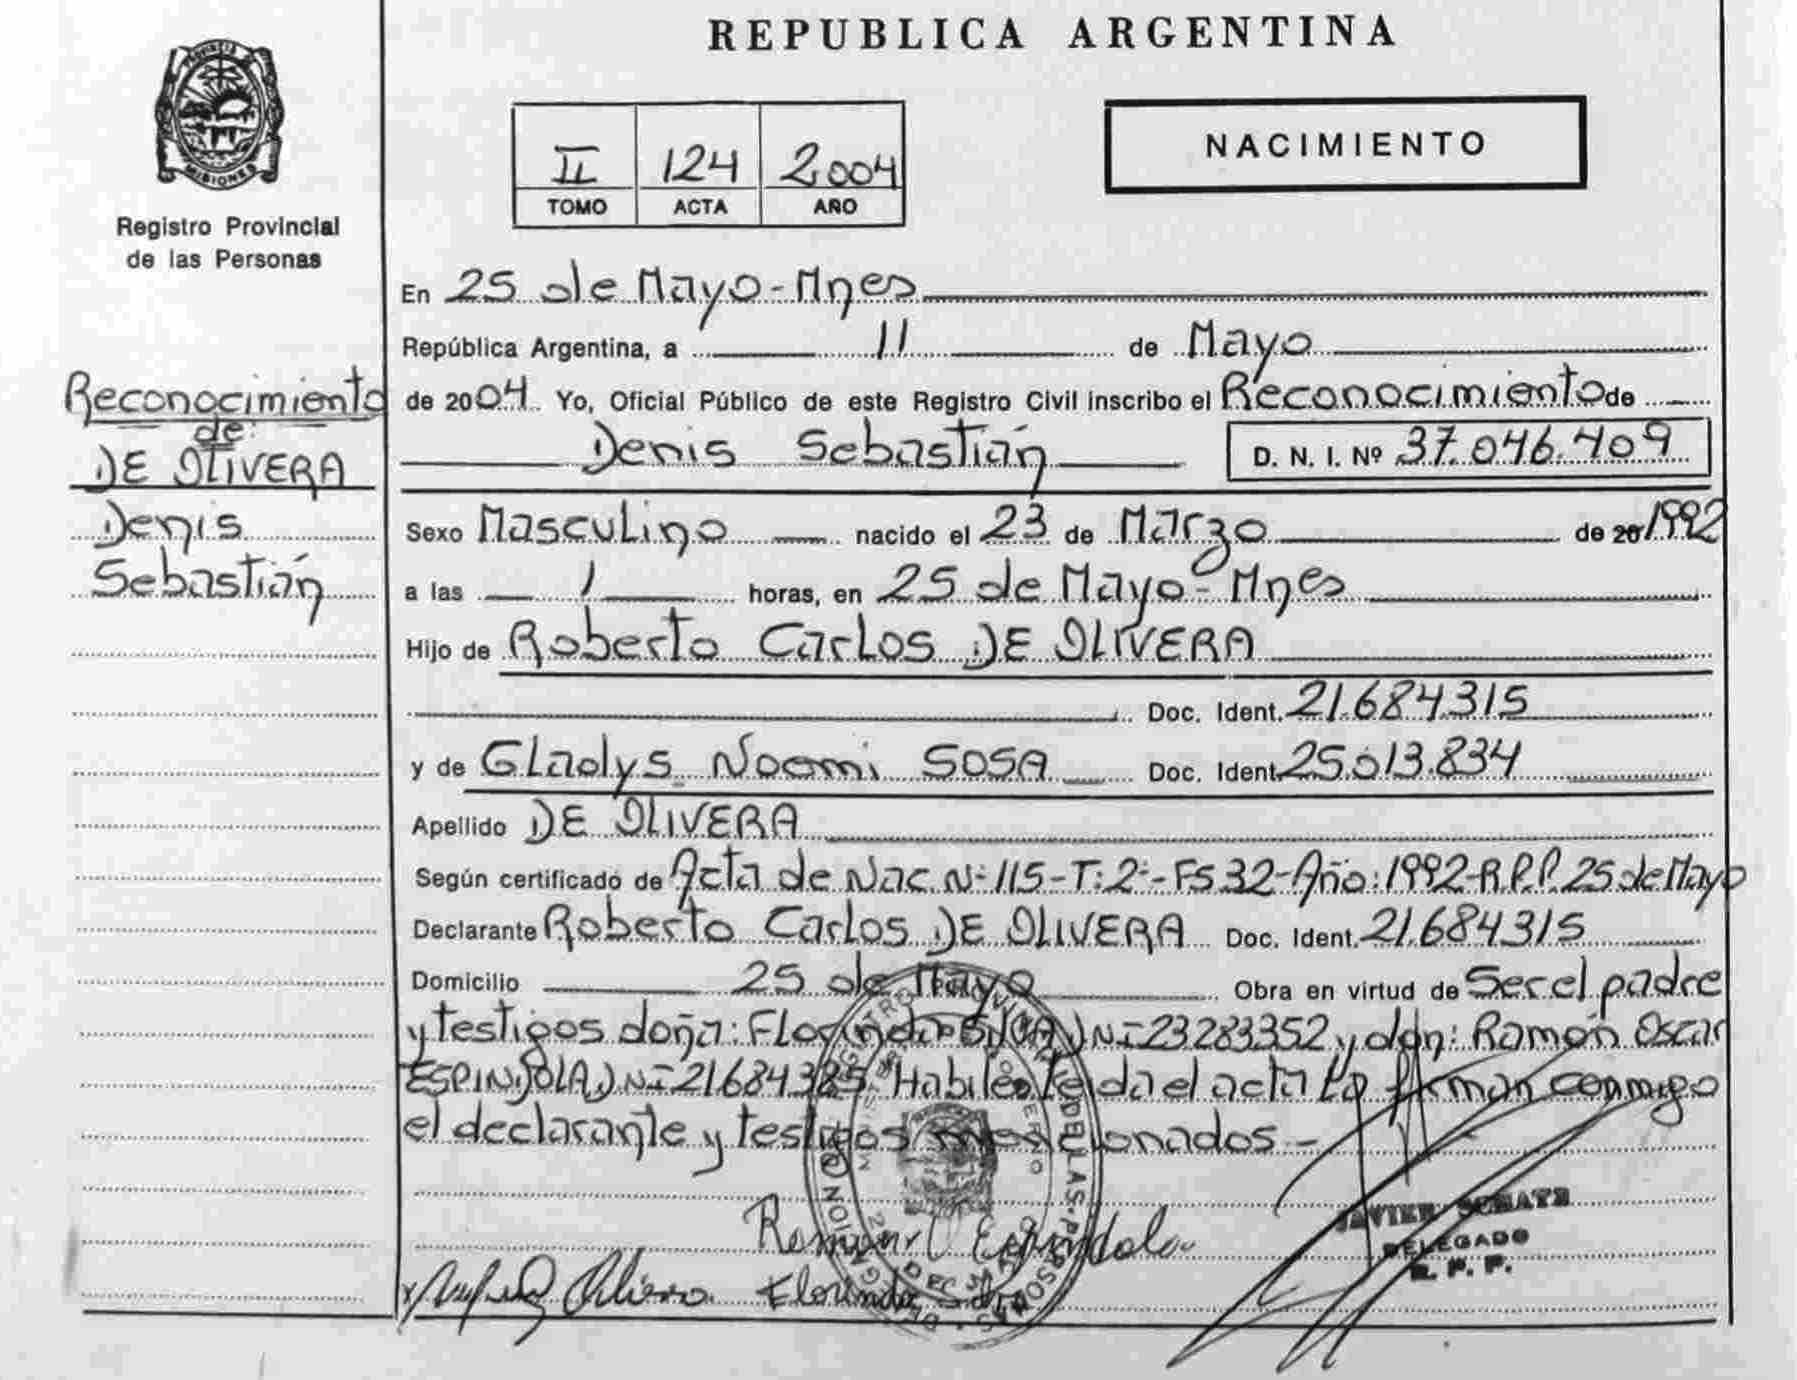 REPUBLICA ARGENTINA
MISIONES
Registro Provincial
de las Personas
II 124 2004
TOMO ACTA AÑO
NACIMIENTO
Reconocimiento
de:
DE OLIVERA
Denis
Sebastián
En 25 de Mayo-Mnes
República Argentina, a 11 de Mayo
de 2004 Yo, Oficial Público de este Registro Civil inscribo el Reconocimiento de
Denis Sebastián D. N. I. Nº 37.046.409
Sexo Masculino nacido el 23 de Marzo de 20 1992
a las 1 horas, en 25 de Mayo-Mnes
Hijo de Roberto Carlos DE OLIVERA
Doc. Ident. 21.684.315
y de Gladys Noemi SOSA Doc. Ident. 25.013.834
Apellido DE OLIVERA
Según certificado de Acta de Nac. Nº 115-T: 2º-FS 32-Año: 1992-R.P.P. 25 de Mayo
Declarante Roberto Carlos DE OLIVERA Doc. Ident. 21.684.315
Domicilio 25 de Mayo Obra en virtud de Ser el padre
y testigos doña: Florinda DNI 23283352 y don: Ramón Oscar
ESPINDOLA DNI 21684385 Habiles leida el acta la firman conmigo
el declarante y testigos mencionados -
JAVIER
DELEGADO
R. P. P.
Espindola
Florinda